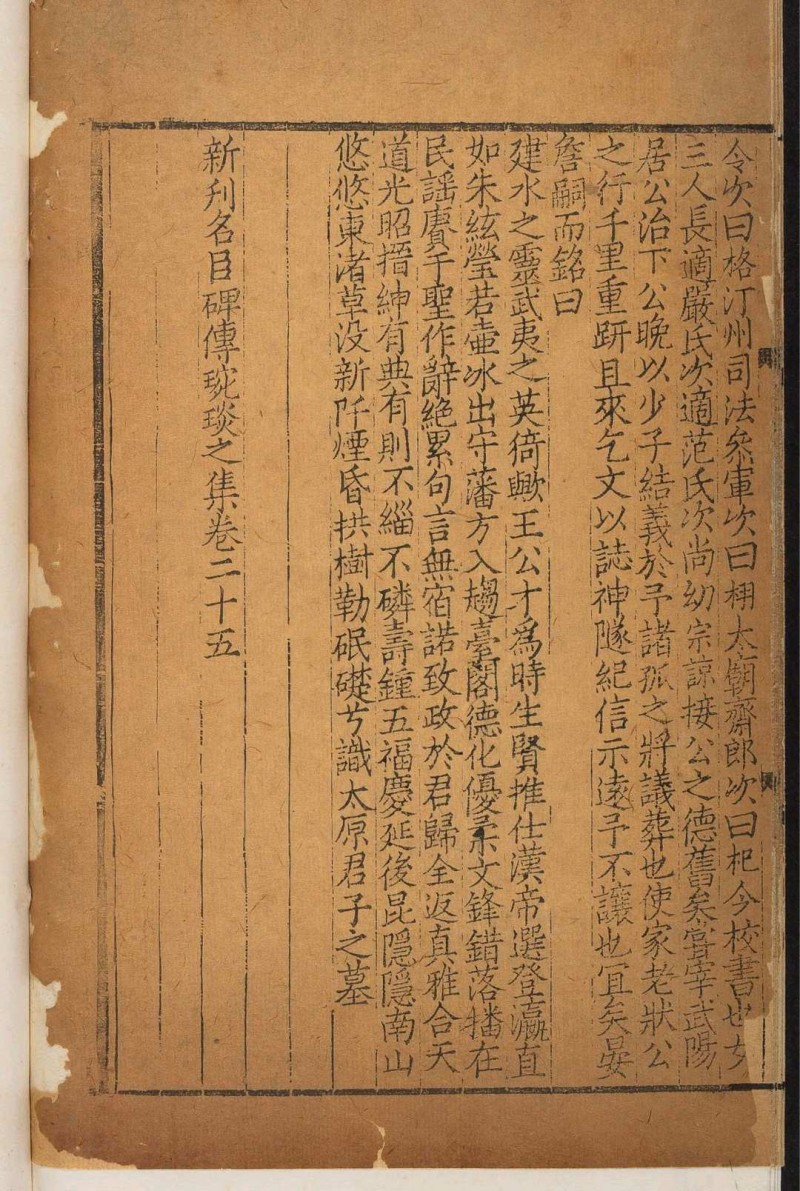 令次曰格汀州司法叅軍次曰栩太廟齋郎次曰杞今校書也女
三人長適嚴氏次適范氏次尚幼宗諒接公之德舊矣嘗宰武陽
居公治下公晚以少子結義於予諸孤之將議葬也使家老狀公
之行千里重趼且來乞文以誌神隧紀信示遠予不讓也宜矣晏
詹嗣而銘曰
建水之靈武夷之英猗歟王公才爲時生賢推仕漢帝選登瀛直
如朱絃瑩若壺冰出守藩方入趨臺閣德化優柔文鋒錯落播在
民謡賡于聖作辭絶累句言無宿諾致政於君歸全返真雅合天
道光昭搢紳有典有則不緇不磷壽鍾五福慶延後昆隠隠南山
悠悠東渚草没新阡煙昏拱樹勒砇礎兮識太原君子之墓
新刊名臣碑傳琬琰之集卷二十五